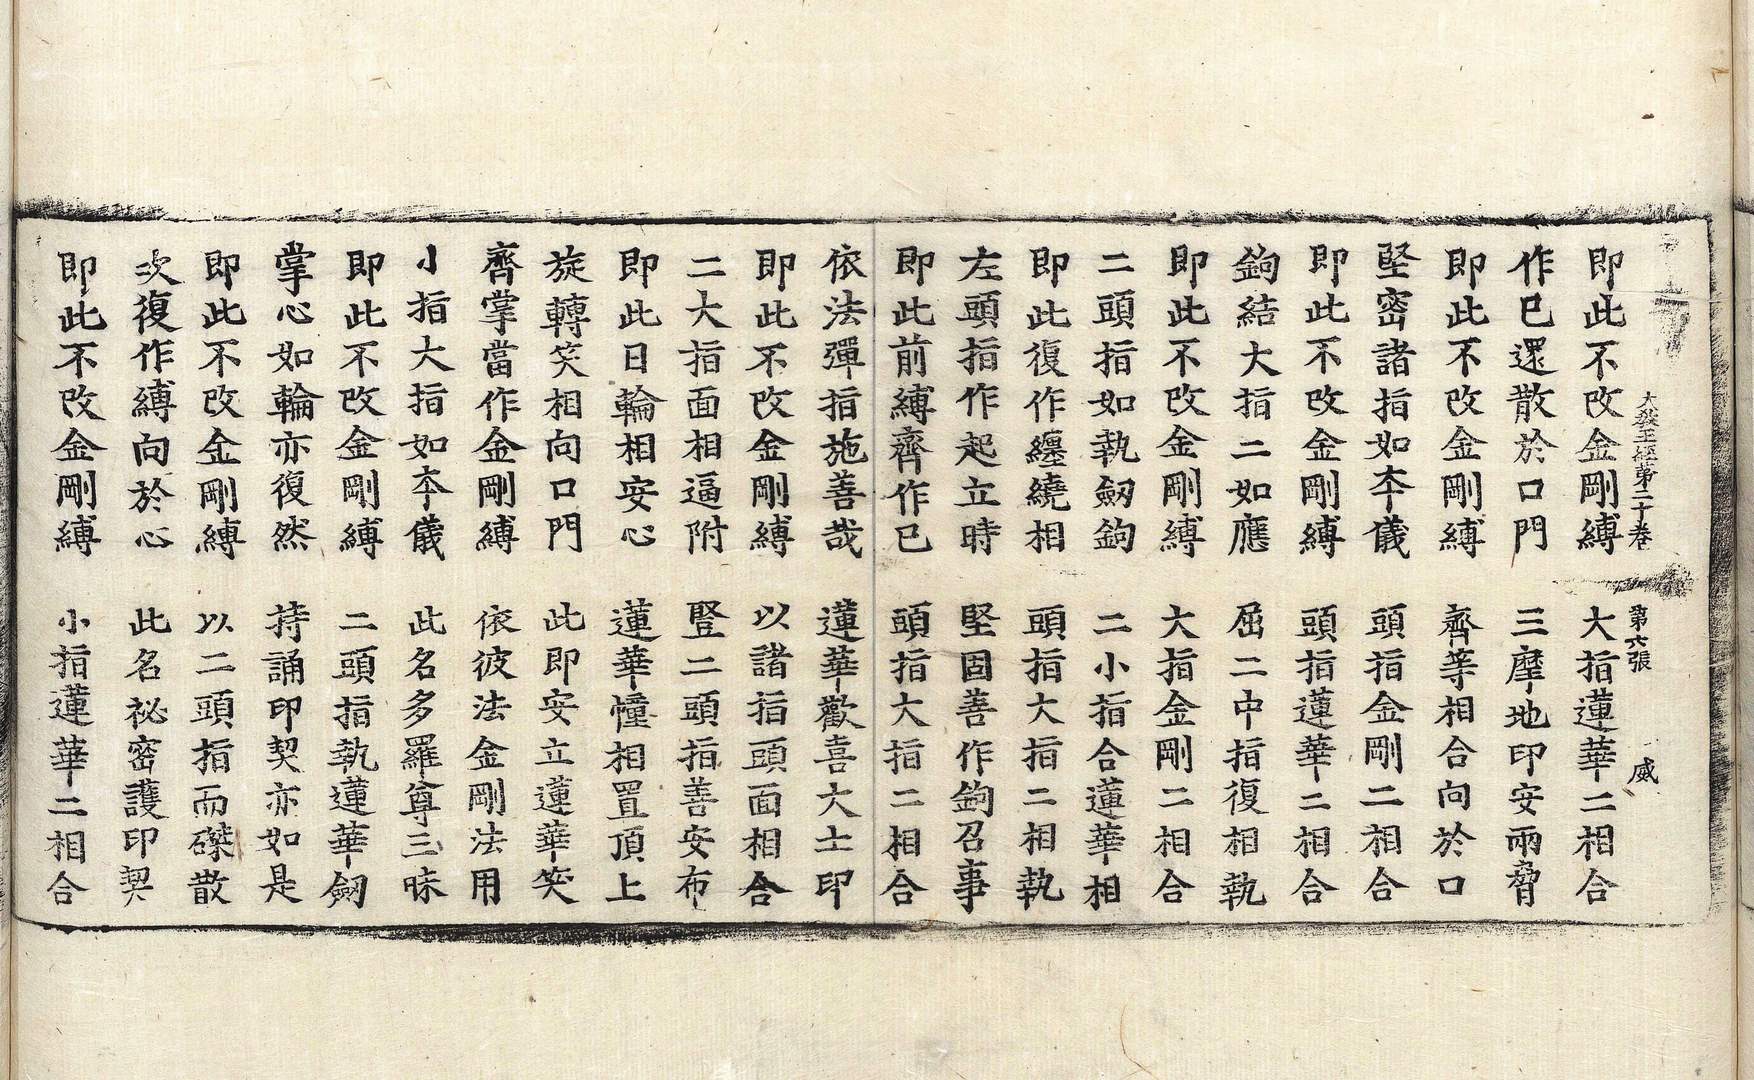 大教王經第二十卷 第六張 威
即此不改金剛縛 大指蓮華二相合
作已還散於口門 三摩地印安兩脅
即此不改金剛縛 齊等相合向於口
堅密諸指如夲儀 頭指金剛二相合
即此不改金剛縛 頭指蓮華二相合
鉤結大指二如應 屈二中指復相執
即此不改金剛縛 大指金剛二相合
二頭指如執劒鉤 二小指合蓮華相
即此復作纏繞相 頭指大指二相執
左頭指作起立時 堅固善作鉤召事
即此前縛齊作已 頭指大指二相合
依法彈指施善哉 蓮華歡喜大士印
即此不改金剛縛 以諸指頭面相合
二大指面相逼附 豎二頭指善安布
即此日輪相安心 蓮華憧相置頂上
旋轉笑相向口門 此即安立蓮華笑
齊掌當作金剛縛 依彼法金剛法用
小指大指如夲儀 此名多羅尊三昧
即此不改金剛縛 二頭指執蓮華劒
掌心如輪亦復然 持誦印契亦如是
即此不改金剛縛 以二頭指而磔散
次復作縛向於心 此名祕密護印契
即此不改金剛縛 小指蓮華二相合